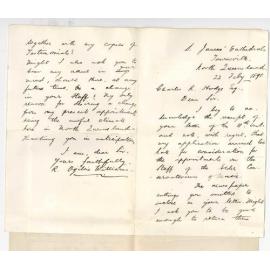 St James' Cathedral,
Townsville,
North Queensland
22 Feby 1898
Charles R. Hodge Esq.
Dear Sir,
I beg to ac-
knowledge the receipt of
your letter of the
and note, with regret, that
my application arrived too
late for consideration in
the appointments on the
Staff of the Sydney Con-
The newspaper
cuttings you omitted to
enclose in your letter. Might
I ask you to be good
enough to return them
together with my copies of
Testimonials?
Might I also ask you to
keep my address in
should there, at any
future time, be a change
in your Staff? My only
reason for desiring a change
from my present appointment
being the awful climate
here in North Queensland.
Thanking you in anticipation
I am, dear Sir,
Yours faithfully,
R. Ogilvie Williams